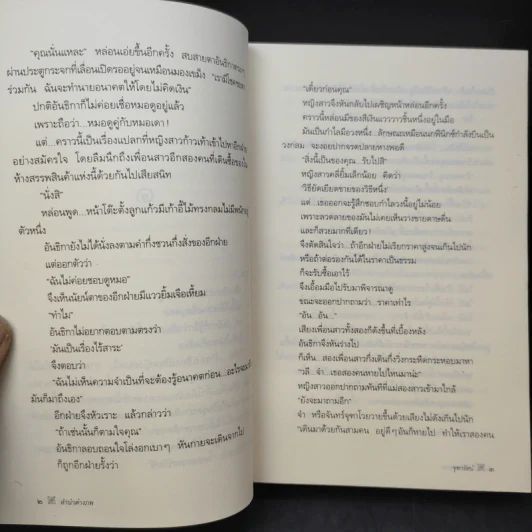 "คุณนั่นแหละ" หล่อนเอ่ยขึ้นอีกครั้ง สบสายตาอันธิกาตรงๆ
ผ่านประตูกระจกที่เลื่อนเปิดรออยู่จนเหมือนมองเขม็ง "เรามีโชคชะตา
ร่วมกัน ฉันจะทำนายอนาคตให้โดยไม่คิดเงิน"
ปกติอันธิกาก็ไม่ค่อยเชื่อหมอดูอยู่แล้ว
เพราะถือว่า...หมอดูคู่กับหมอเดา !
แต่...คราวนี้เป็นเรื่องแปลกที่หญิงสาวก้าวเท้าเข้าไปหาอีกฝ่าย
อย่างสมัครใจ โดยลืมนึกถึงเพื่อนสาวอีกสองคนที่เดินซื้อของใน
ห้างสรรพสินค้าแห่งนี้ด้วยกันไปเสียสนิท
"นั่งสิ"
หล่อนพูด...หน้าโต๊ะตั้งลูกแก้วมีเก้าอี้ไม้ทรงกลมไม่มีพนัก
ตัวหนึ่ง
อันธิกายังไม่ได้นั่งลงตามคำกึ่งชวนกึ่งสั่งของอีกฝ่าย
แต่ออกตัวว่า
"ฉันไม่ค่อยชอบดูหมอ"
จึงเห็นนัยน์ตาของอีกฝ่ายมีแววยิ้มเจือเหี้ยม
"ทำไม"
อันธิกาไม่อยากตอบตามตรงว่า
'มันเป็นเรื่องไร้สาระ'
จึงตอบว่า
"ฉันไม่เห็นความจำเป็นที่จะต้องรู้อนาคตก่อน...อะไรจะ
มันก็มาถึงเอง"
อีกฝ่ายจึงหัวเราะ แล้วกล่าวว่า
"ถ้าเช่นนั้นก็ตามใจคุณ"
อันธิกาลอบถอนใจโล่งอกเบาๆ หันกายจะเดินจากไป
ก็ถูกอีกฝ่ายรั้งว่า
๒ ลำนำต่างภพ
"เดี๋ยวก่อนคุณ"
หญิงสาวจึงหันกลับไปเผชิญหน้าหล่อนอีกครั้ง
คราวนี้หล่อนมีของสีเงินแวววาวชิ้นหนึ่งอยู่ในมือ
มันเป็นกำไลมือวงหนึ่ง...ลักษณะเหมือนนกฟีนิกซ์กำลังบินเป็น
วงกลม จะงอยปากจรดปลายหางพอดี
"สิ่งนี้เป็นของคุณ...รับไปสิ"
หญิงสาวคลี่ยิ้มเล็กน้อย คิดว่า
'วิธียัดเยียดขายของวิธีหนึ่ง'
แต่...เธอออกจะรู้สึกชอบกำไลวงนี้อยู่ไม่น้อย
เพราะลวดลายของมันไม่เคยเห็นวางขายดาษดื่น
และก็สวยมากทีเดียว !
จึงตัดสินใจว่า...ถ้าอีกฝ่ายไม่เรียกราคาสูงจนเกินไปนัก
หรือถ้าต่อรองกันได้ในราคาเป็นธรรม
ก็จะรับซื้อเอาไว้
จึงเอื้อมมือไปรับมาพิจารณาดู
ขณะจะออกปากถามว่า...ราคาเท่าไร
"อัน..อัน..."
เสียงเพื่อนสาวทั้งสองก็ดังขึ้นที่เบื้องหลัง
อันธิกาจึงหันร่างไป
ก็เห็น...สองเพื่อนสาวกึ่งเดินกึ่งวิ่งกระหืดกระหอบมาหา
"วลี...จ๋า...เธอสองคนหายไปไหนมาน่ะ"
หญิงสาวออกปากถามทันทีที่แม่สองสาวเข้ามาใกล้
"ยังจะมาถามอีก"
จ๋า หรือจันทร์จุฑาโวยวายขึ้นด้วยเสียงไม่ดังเกินไปนัก
"เดินมาด้วยกันสามคน อยู่ดีๆ อันก็หายไป ทำให้เราสองคน
จุฑารัตน์ ๓